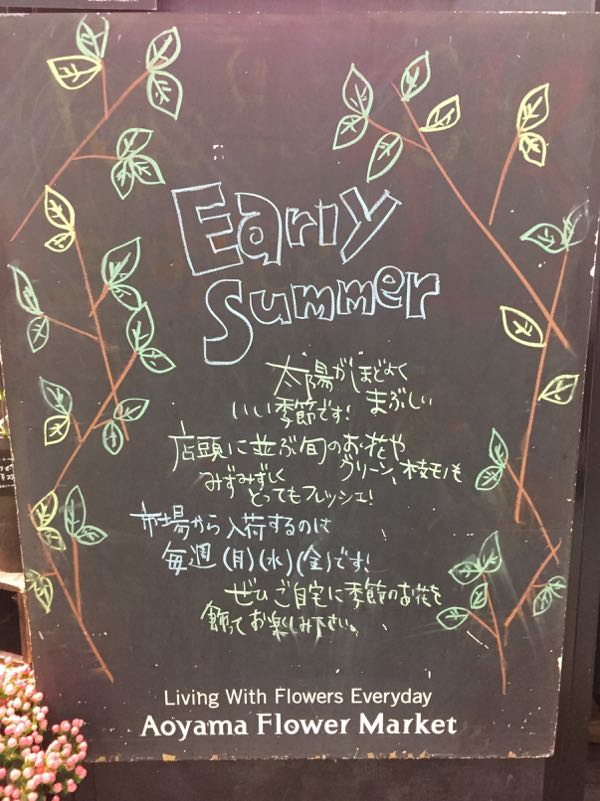 Early
Summer
太陽がほどよく
まぶしい
いい季節です!
店頭に並ぶ旬のお花や
グリーン、枝モノも
みずみずしく
とってもフレッシュ!
市場から入荷するのは
毎週(月)(水)(金)です!
ぜひご自宅に季節のお花を
飾ってお楽しみ下さい。
Living With Flowers Everyday
Aoyama Flower Market